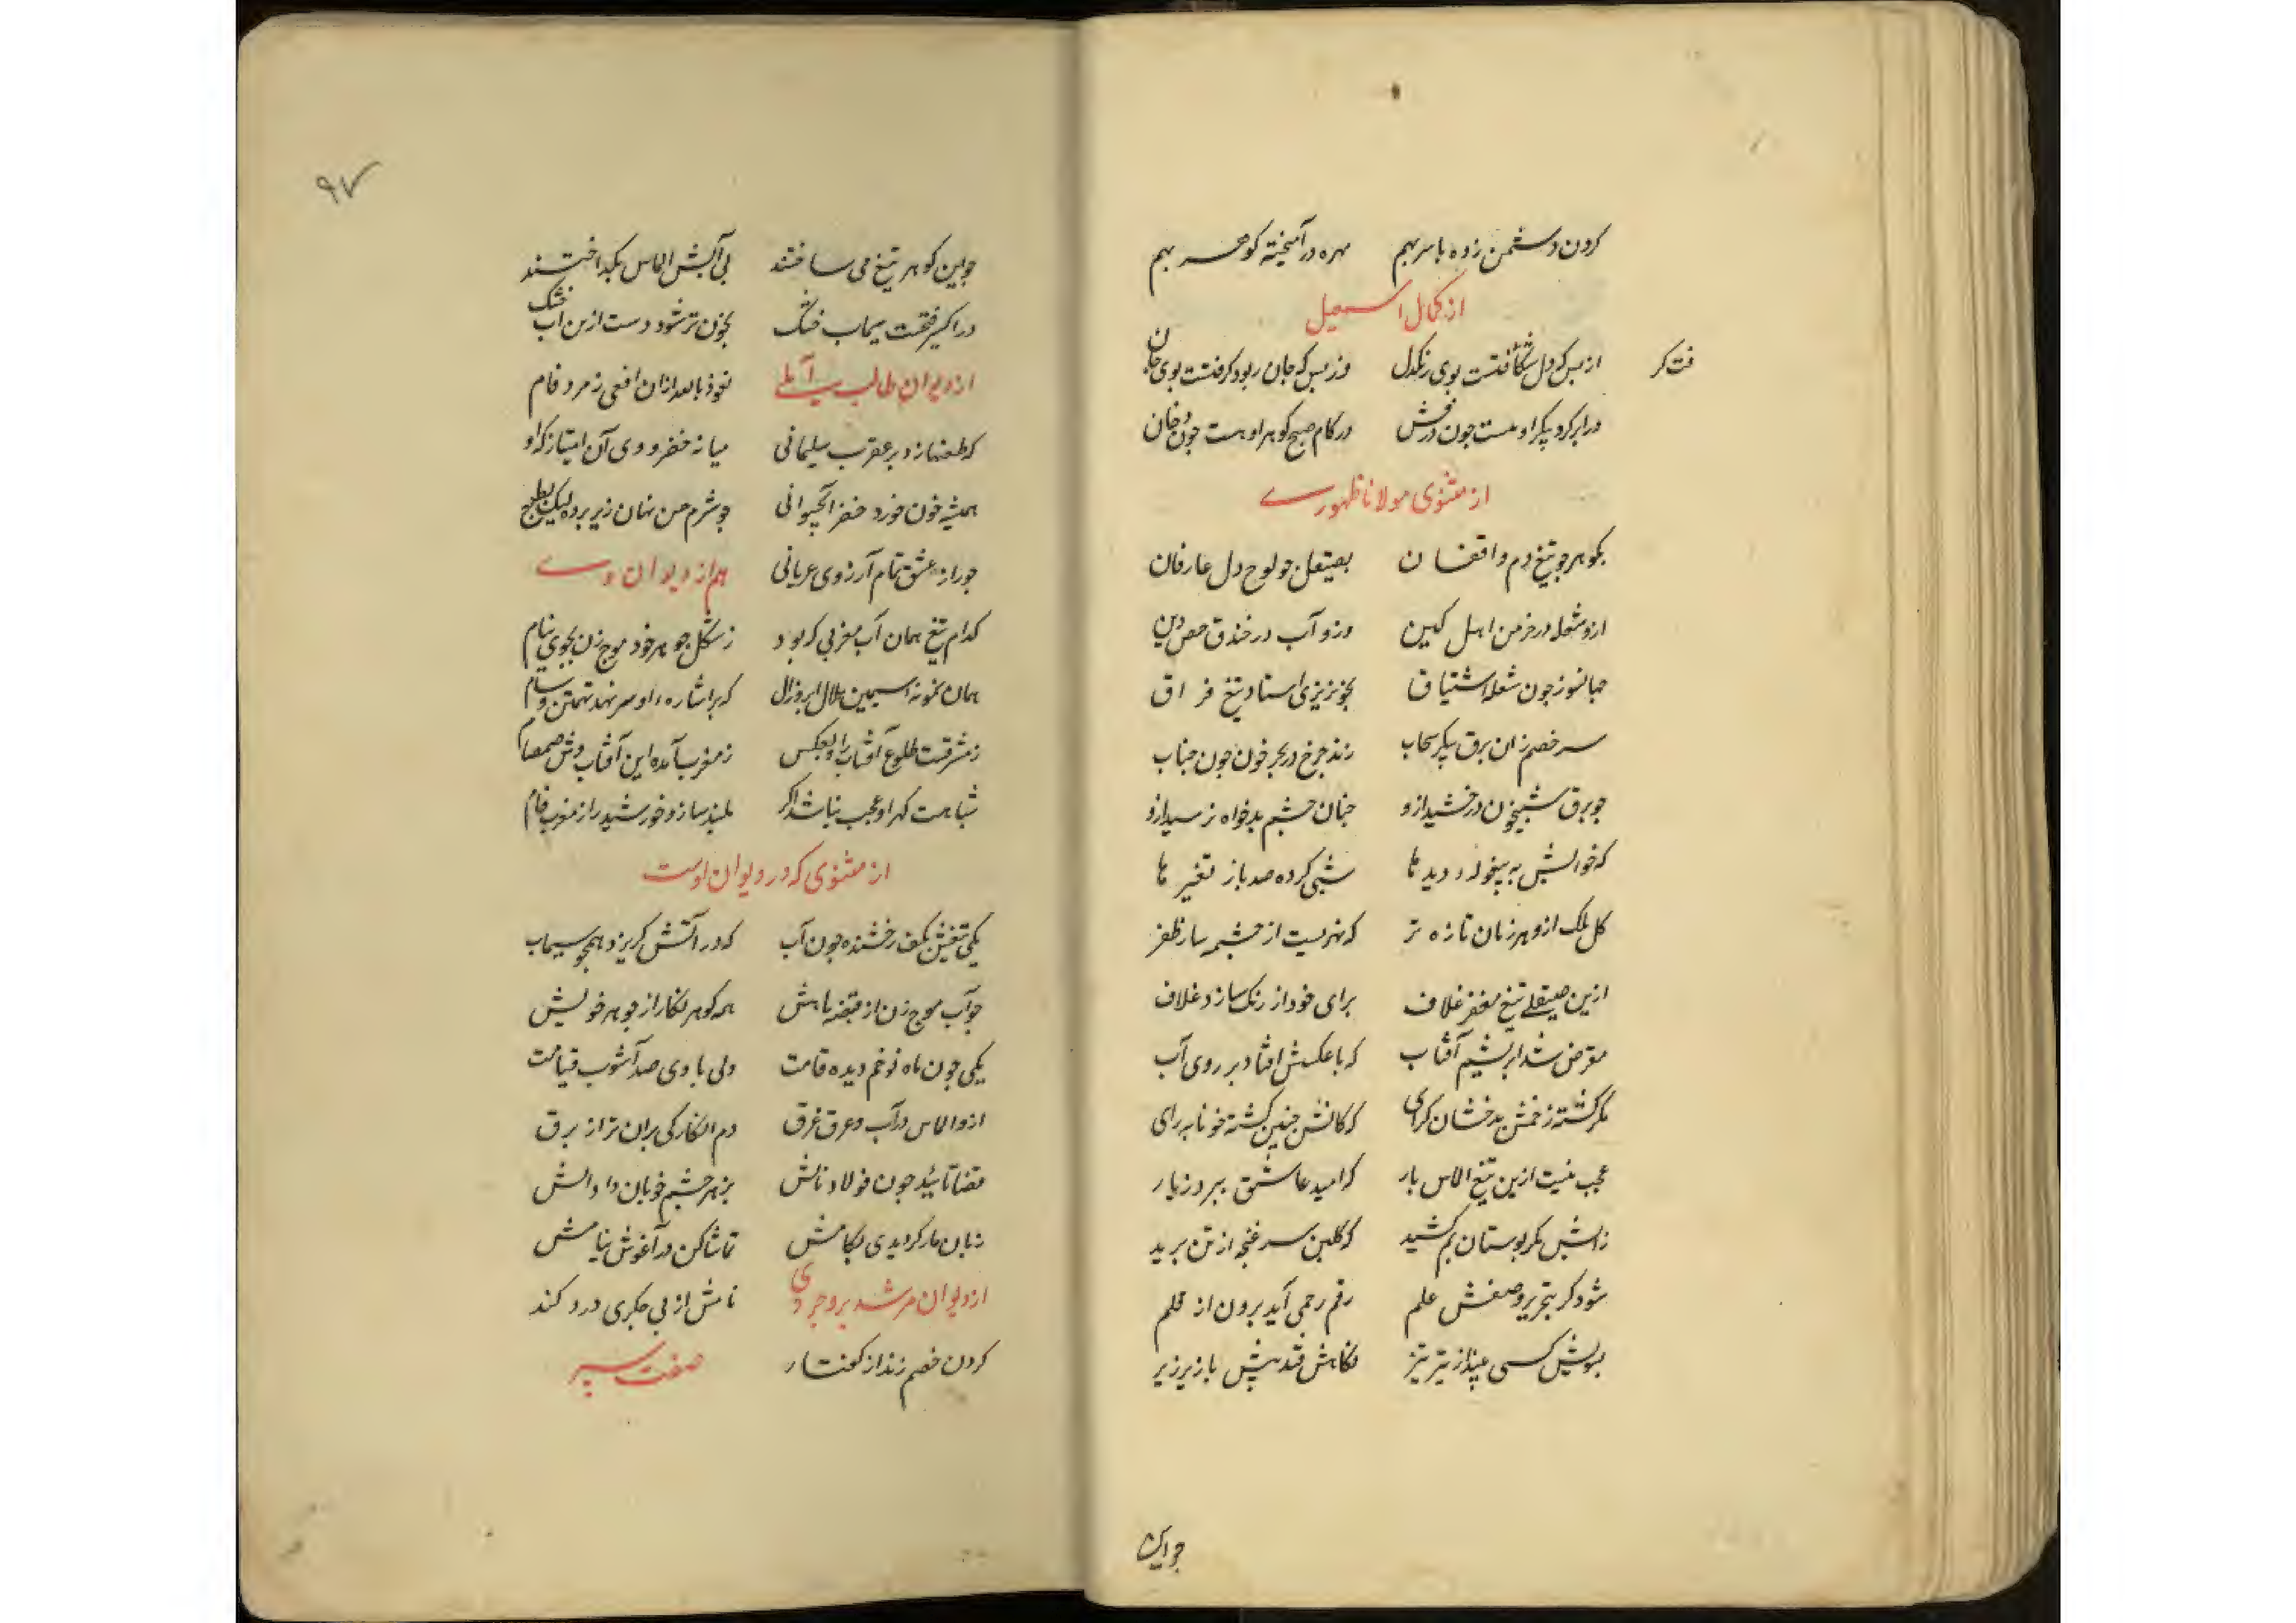 کردن دشمن زده با سر بهم مهره در آمیخته کوهر بهم
از کمال اسمعیل
از بس که دل شکافتست بوی رنکدل وز بس که جان ربود کرفتست بوی جان
فت کر
در ابر کرد پیکر او هست چون درفش در کام صبح کوهر او هست چون دخان
از مثنوی مولانا ظهوری
بکوهر چو تیغ دم واقفان بصیقل چو لوح دل عارفان
ازو شعله در خرمن اهل کین وزو آب در خندق حصن دین
جهانسوز چون شعله اشتیاق بخونریزی استاد تیغ فراق
سر خصم زان برق پیکر سحاب زند چرخ در بحر خون چون حباب
چو برق شبیخون درخشید ازو چنان چشم بدخواه ترسید ازو
که خوابش به بیغوله دیدها شبی کرده صد باز تغییر ها
کل ملک ازو هر زمان تازه تر که نهریست از چشمه سار ظفر
ازین صیقلی تیغ مغفر غلاف برای خود از رنک سازد غلاف
مقرض شد ابریشم آفتاب که با عکسش افتاد بر روی آب
مکر کشته زخمش بدخشان کرای که کانش چنین کشته خونابه رای
عجب نیست ازین تیغ الماس بار که امید عاشق ببرد ز یار
زآبش مکر بوستان نم کشید که کلبن سر غنچه از تن برید
شود کر بتحریر وصفش علم رقم زخمی آید برون از قلم
بسویش کسی بیند از تیر تیز نکاهش فتد پیش پا ریز ریز
چو این
۹۷
چو این کوهر تیغ می ساختند بی آبش الماس بکداختند
در اکسیر فتحست سیماب خشک بخون تر شود دست ازین آب خشک
از دیوان طالب آملی نعوذ بالله از ان افعی زمرد فام
که طعنها زده بر عقرب سلیمانی میانه خضر و وی آن امتیاز که او
همیشه خون خورد و خضر آب حیوانی چو شرم حسن نهان زیر پرده لیک بطبع
چو راز عشق تمام آرزوی عریانی هم از دیوان وی
کدام تیغ همان آب مغربی که بود ز شکل جوهر خود موج زن بجوی نیام
همان نمونه سیمین هلال ابروزال که بر اشاره او سر نهد تهمتن و سام
ز مشرقست طلوع آفتاب را و بعکس ز مغرب آمده این آفتاب وش صمصام
شباهت کهر او عجب نباشد اکر بلند سازد خورشید را ز مغرب نام
از مثنوی که در دیوان اوست
یکی تیغش بکف رخشنده چون آب که در آتش کریزد همچو سیماب
چو آب موج زن از قبضه تا نیش همه کوهر نکار از جوهر خویش
یکی چون ماه نو خم دیده قامت ولی با وی صد آشوب قیامت
ازو الماس در آب و عرق غرق دم انکارکی بران تر از برق
قضا تابید چون فولاد نابش بزهر چشم خوبان داد آبش
زبان مار کردیدی بکامش تماشا کن در آغوش نیامش
از دیوان مرشد بروجردی تا مش از بی جکری درد کند
کردن خصم زند از کفتار صفت سپر